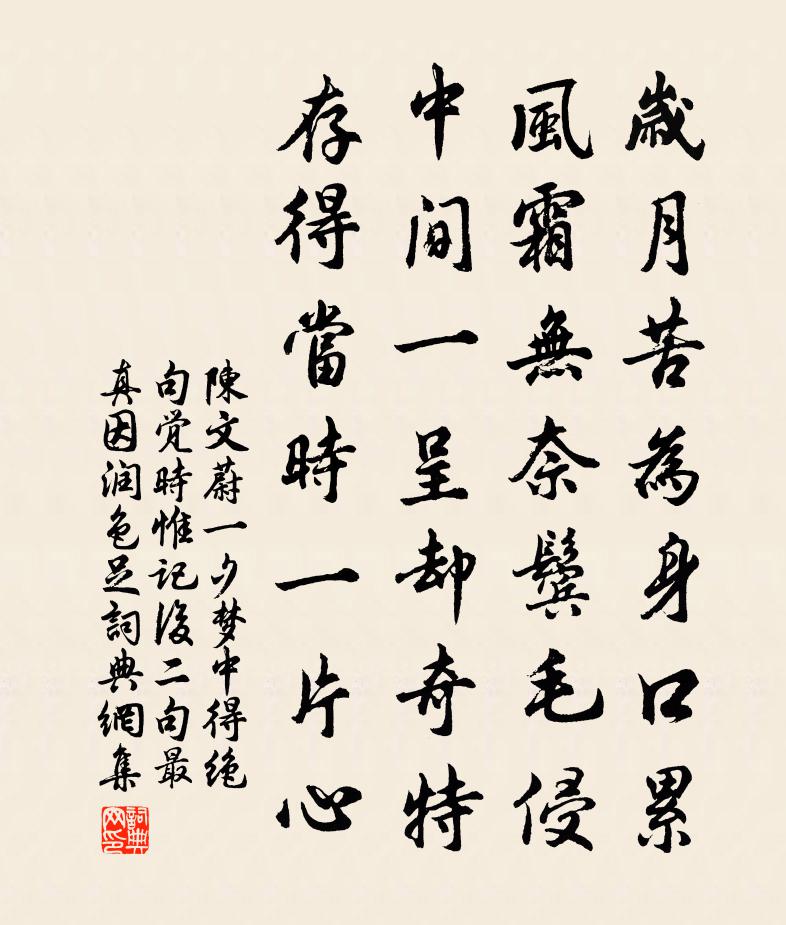 歲月苦為身口累
風霜無奈鬓毛侵
中间一呈却奇特
存得當時一片心
陳文蔚一夕梦中得绝
句觉時惟記後二句最
真因润色足詞典網集
詞典网印